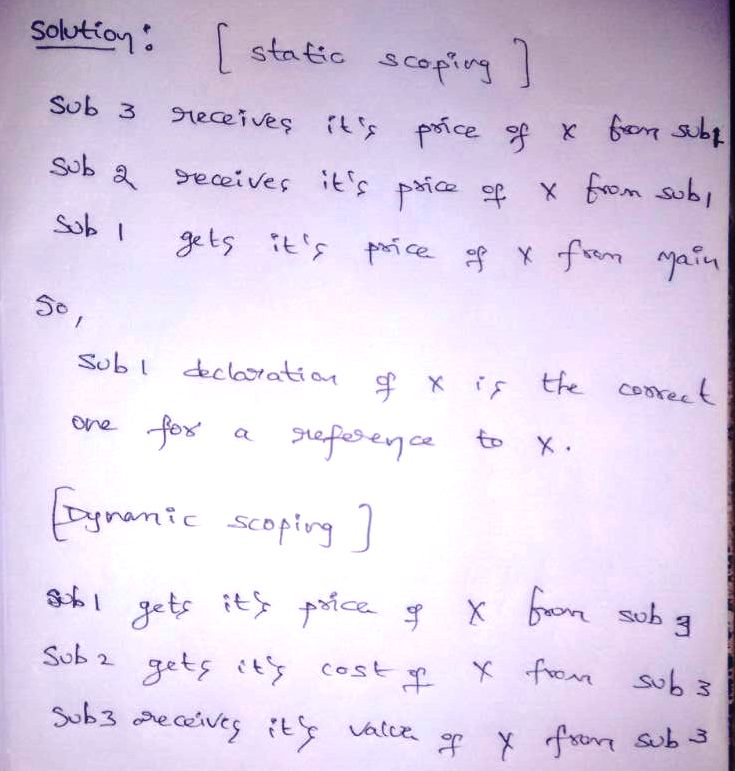 Solution: [static scoping]
Sub 3 receives it's price of x from sub1
Sub 2 receives it's price of x from sub1
Sub 1 gets it's price of x from main
So,
Sub 1 declaration of x is the correct
one for a reference to x.
[Dynamic scoping]
sub1 gets it's price of x from sub 3
Sub 2 gets it's cost of x from sub 3
Sub3 receives it's value of x from sub 3